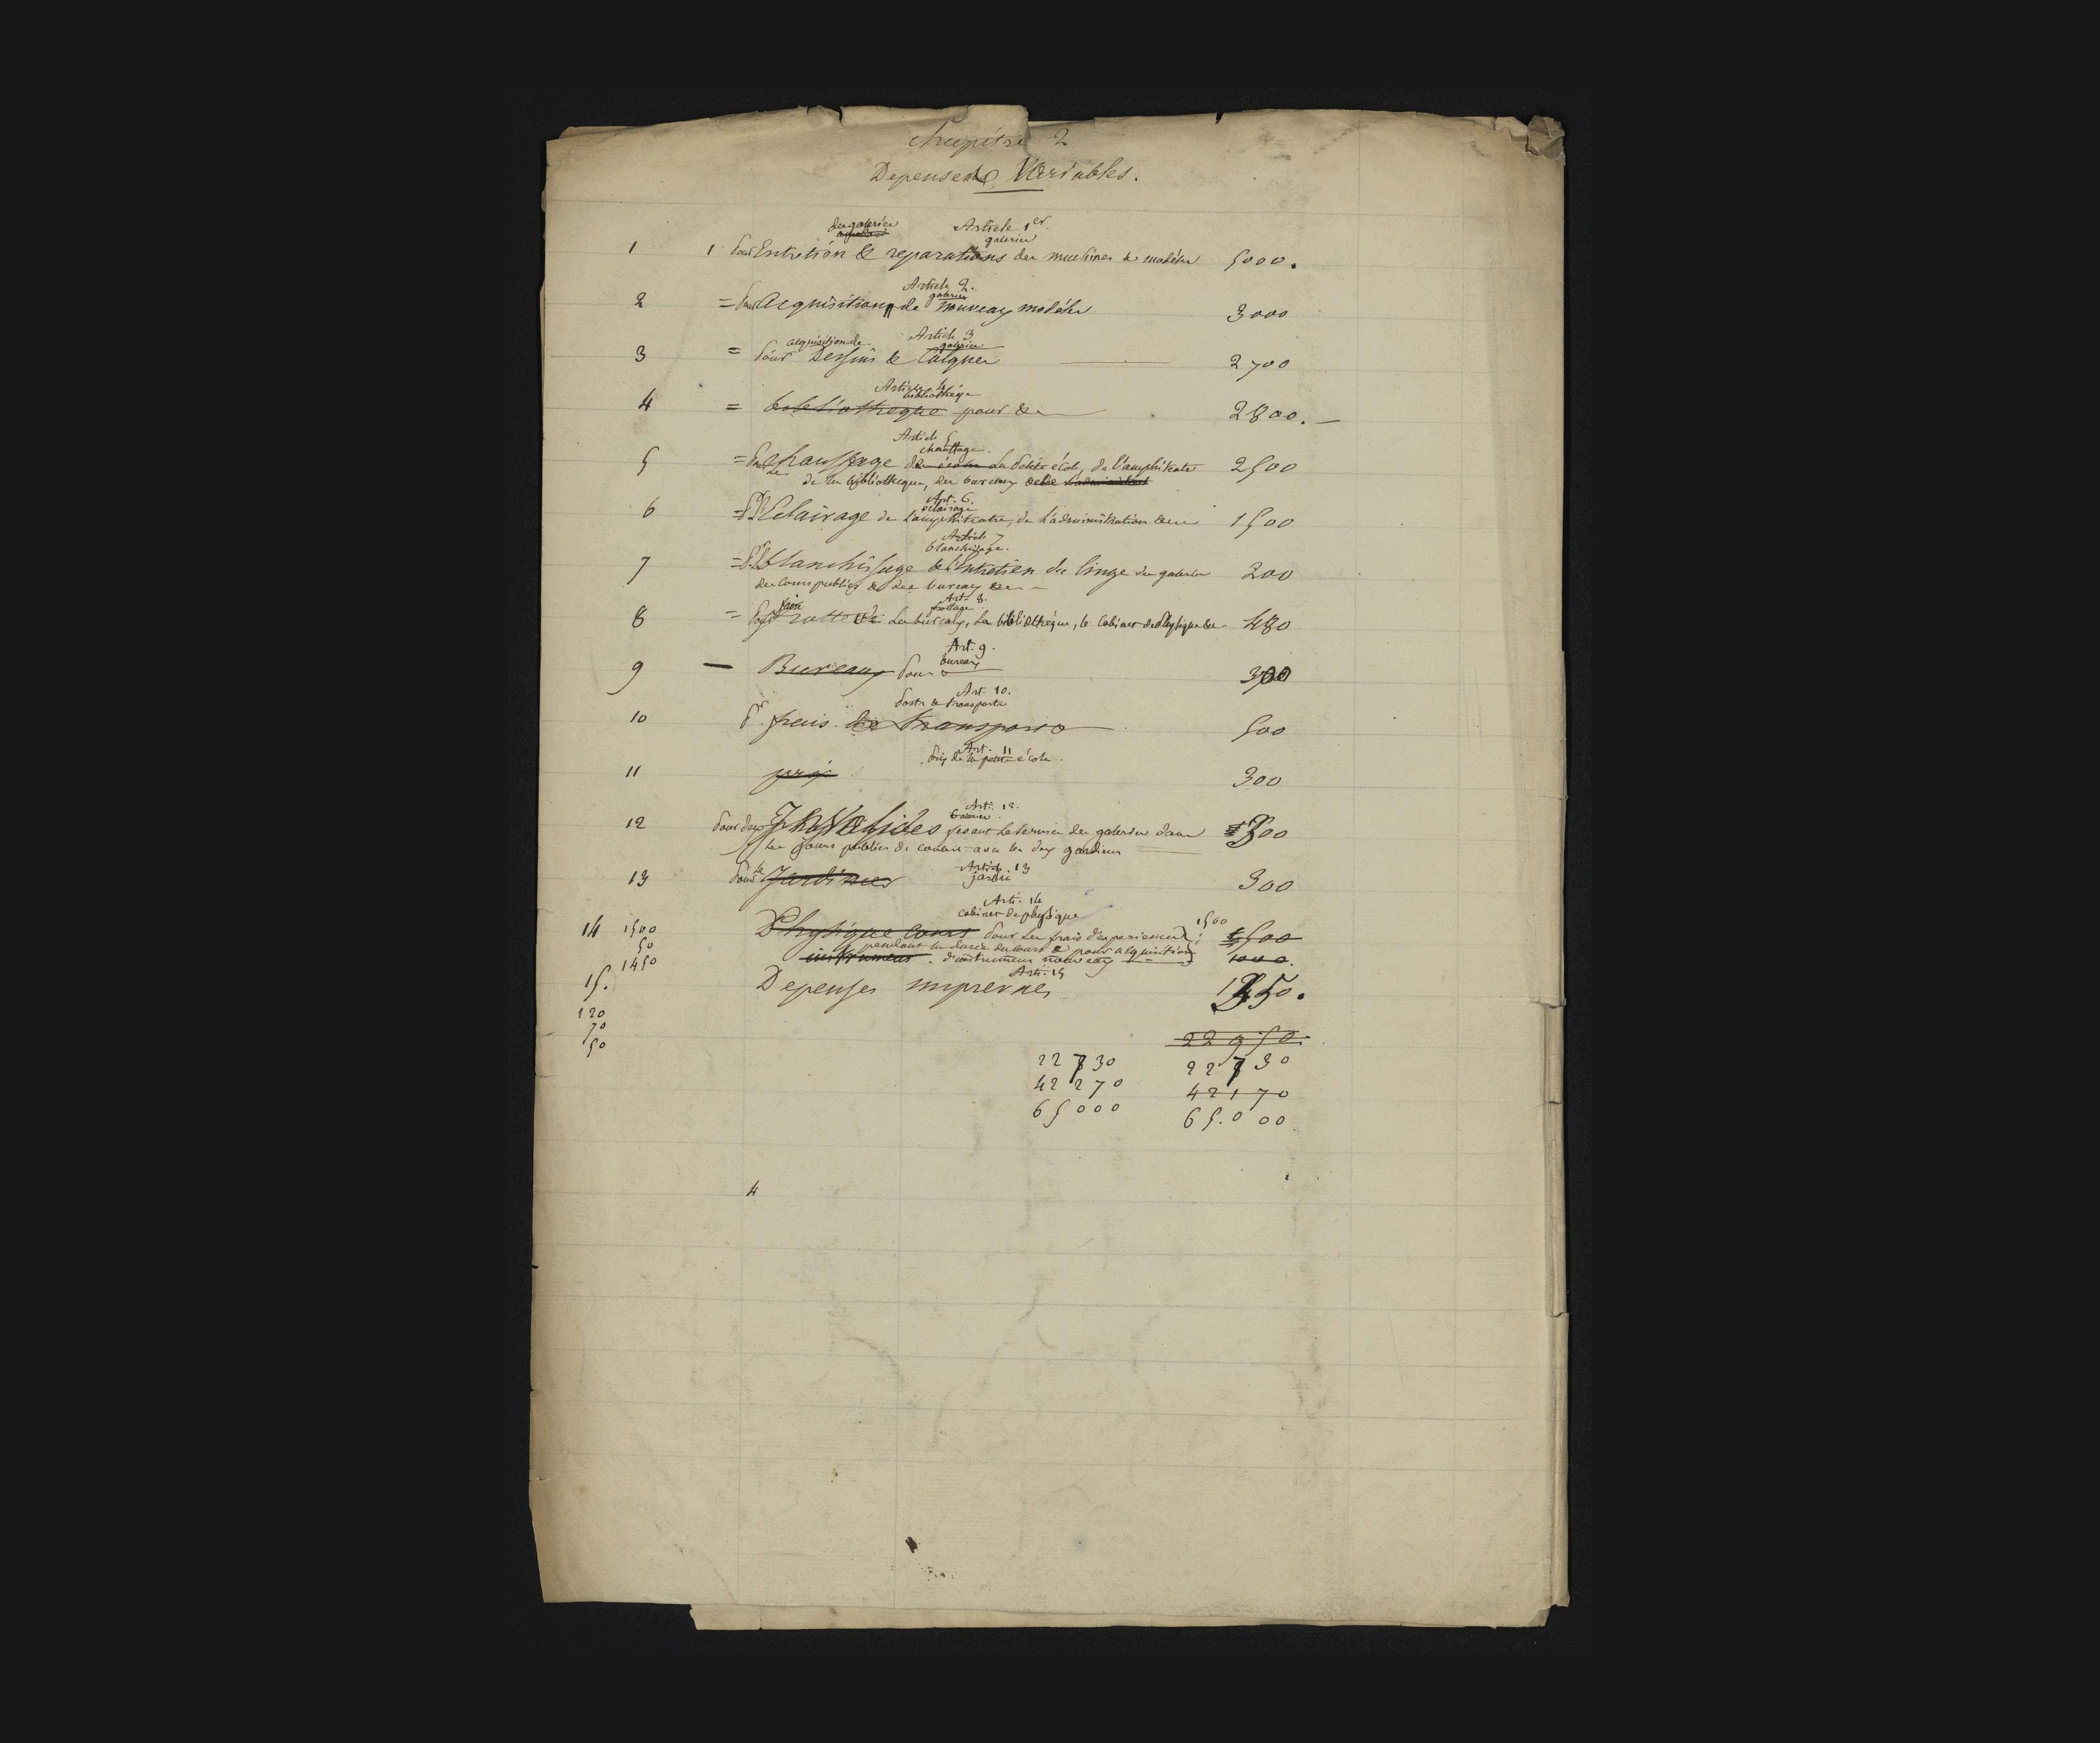 Chapitre 2
Depenses Variables.
des galeries Article 1er.
galeries
1 1 pour Entretien & reparations des machines & modéles 5000.
Article 2.
galeries
2 = pour acquisition de nouveaux modéles 3000
acquisition de Article 3
galeries
3 = pour Dessins & Calques 2700
Article 4
bibliothéque
4 = bibliotheque pour 2800.
Article 5
chauffage.
5 = pour chauffage de la petite école, de l'amphiteatre 2500
de la bibliotheque, des bureaux
Art. 6.
éclairage
6 = pr Eclairage de l'amphiteatre, de l'administration 1500
Article 7
blanchissage.
7 = pr blanchissage & Entretien du linge des galeries 200
des cours publics & des bureaux
Art. 8.
frottage
8 = pour les bureaux, la bibliothéque, le Cabinet de Physique 480
Art. 9.
bureaux
9 — Bureaux pour 300
Art. 10.
ports & transports
10 pr. frais de transports 500
Art. 11
prix de la petite école.
11 prix 300
Art. 12.
Galeries
12 pour deux Invalides fesant le service des galeries dans 300
les jours publics de concert avec les deux gardiens
Article 13
jardin
13 pour le Jardinier 300
Art. 14
Cabinet de physique
14 1500 Physique Cours pour les frais d'experiences 1500 1500
50 pendant la durée du cours & pour acquisition
1450 instrumens. d'instrumens nouveaux 1000.
Art. 15
15. Depenses imprevues 50.
120
70
50 22950.
22730 22730
42270 42170
65000 65.000
4